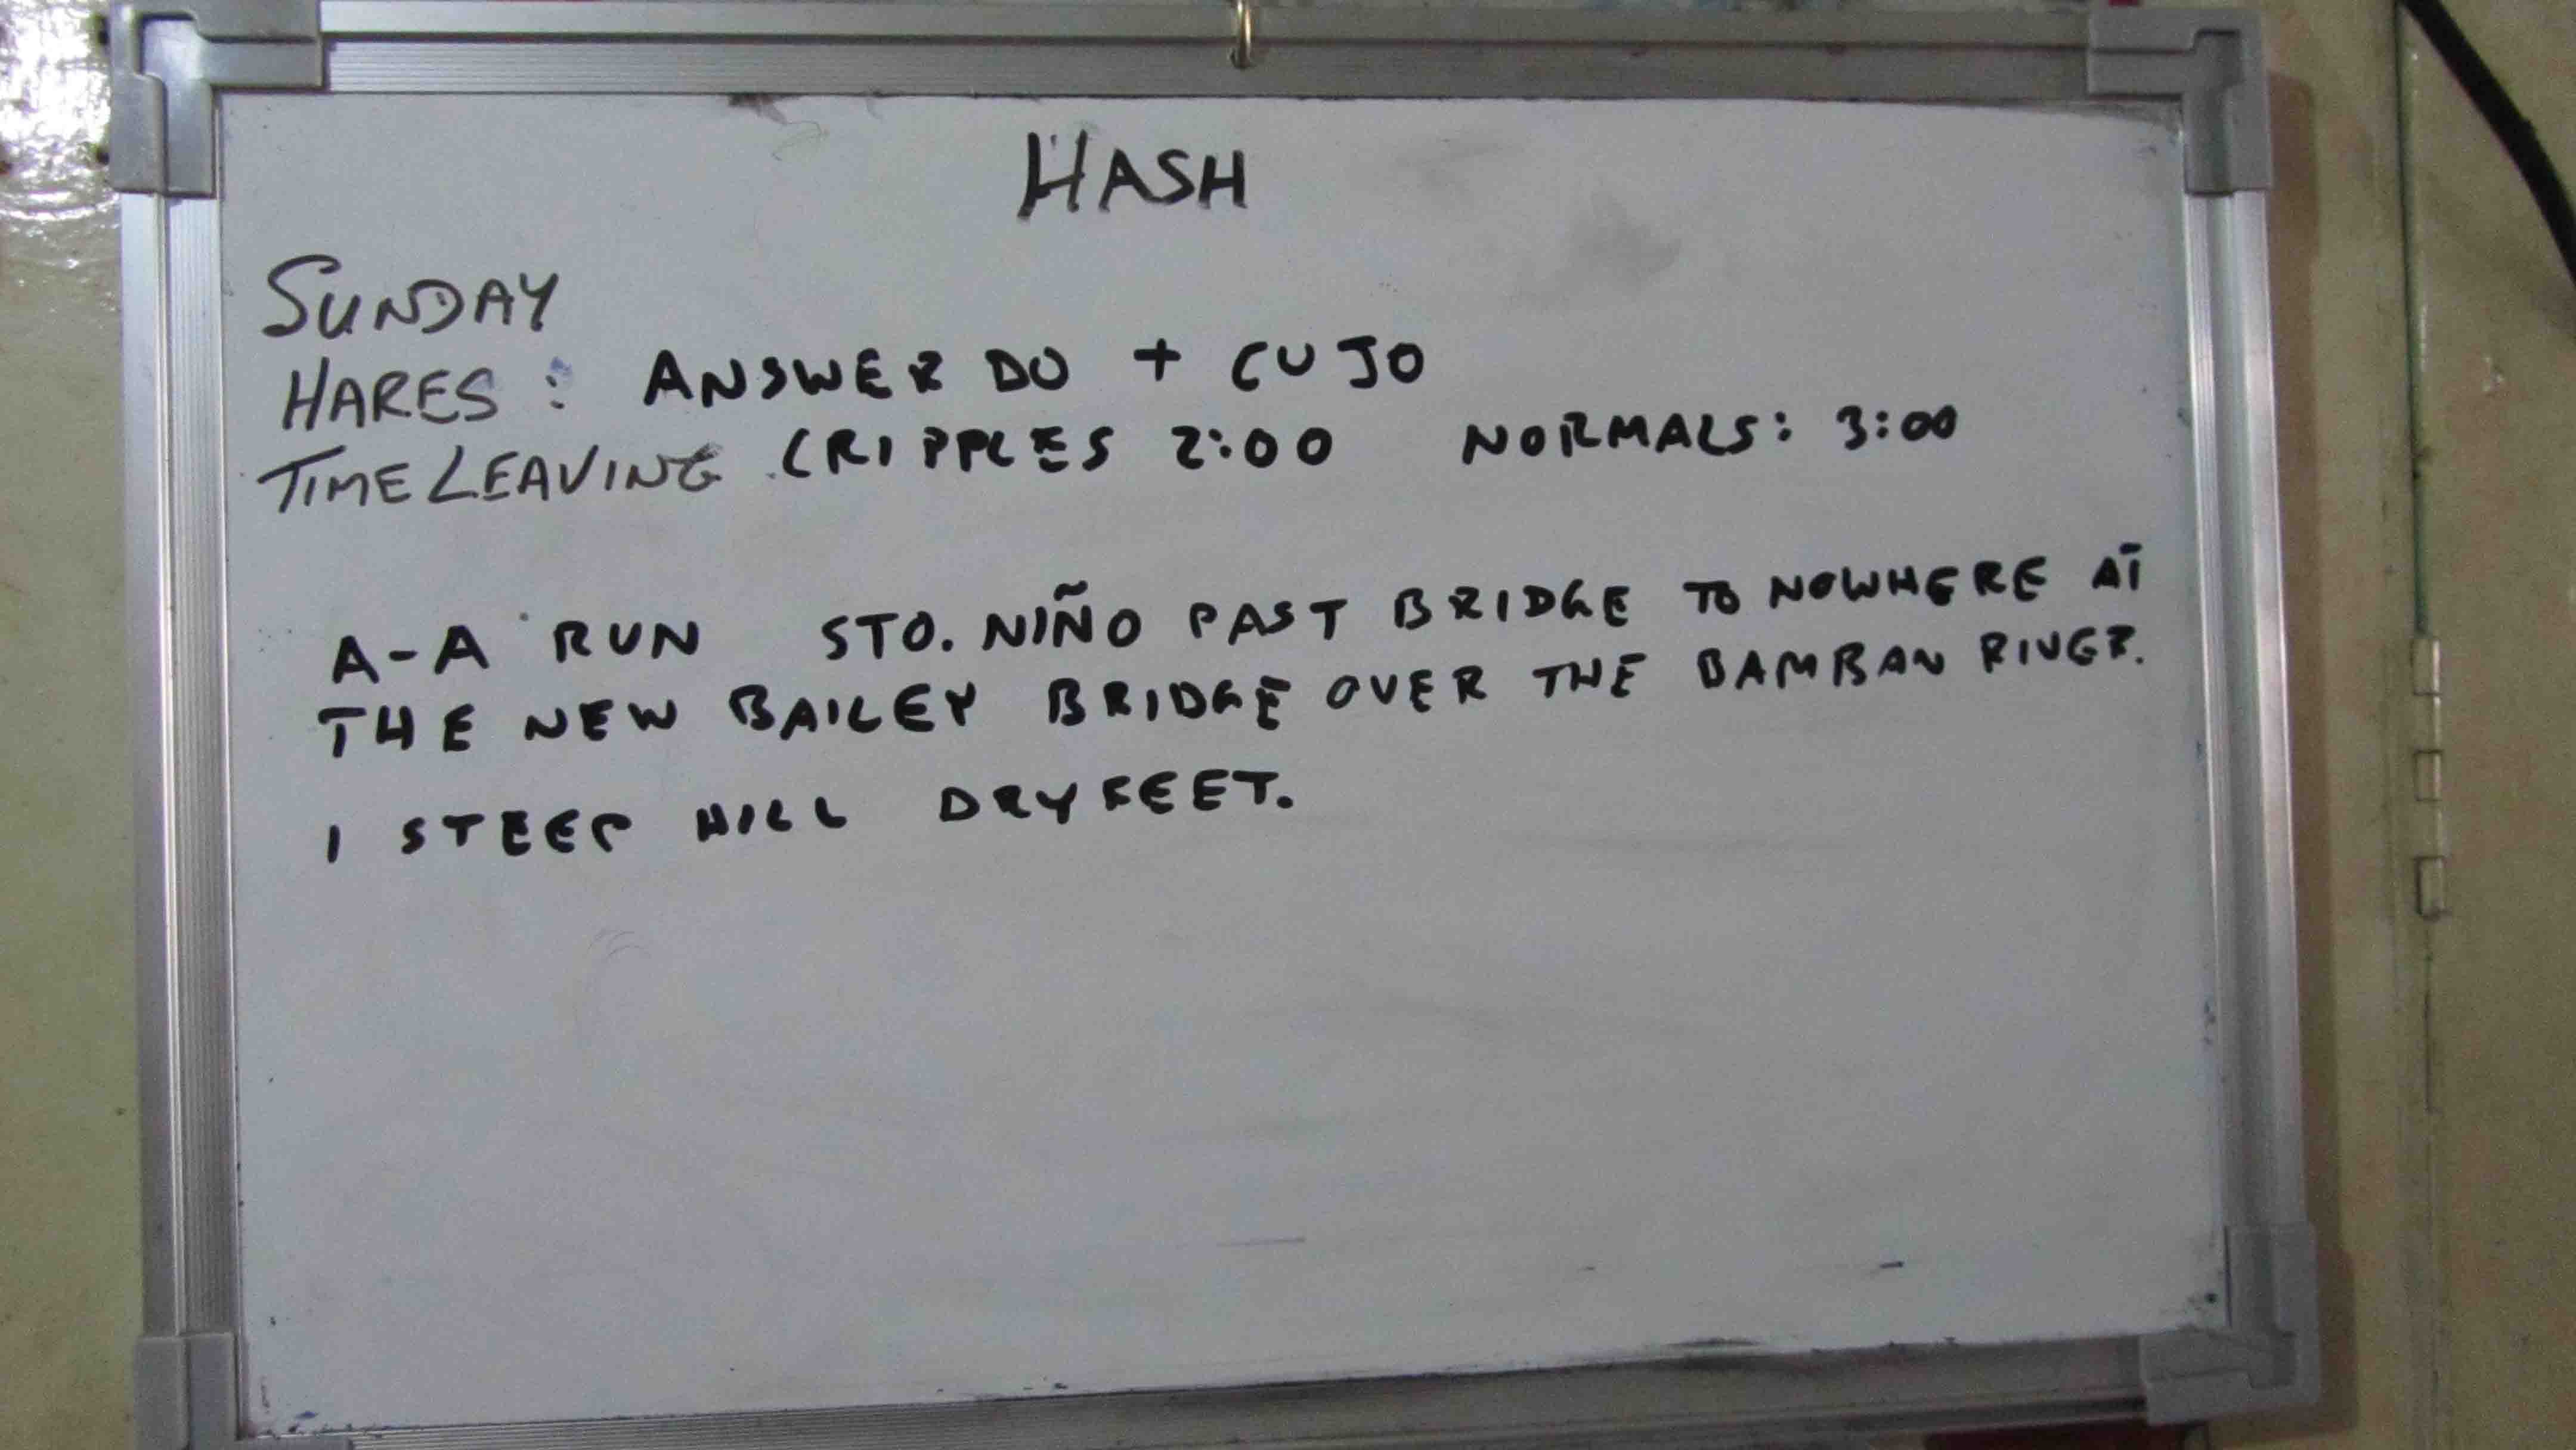 HASH
SUNDAY
HARES: ANSWER DO + CUJO
TIME LEAVING CRIPPLES 2:00 NORMALS: 3:00
A-A RUN STO. NIÑO PAST BRIDGE TO NOWHERE AT
THE NEW BAILEY BRIDGE OVER THE BAMBAN RIVER.
1 STEEP HILL DRY FEET.